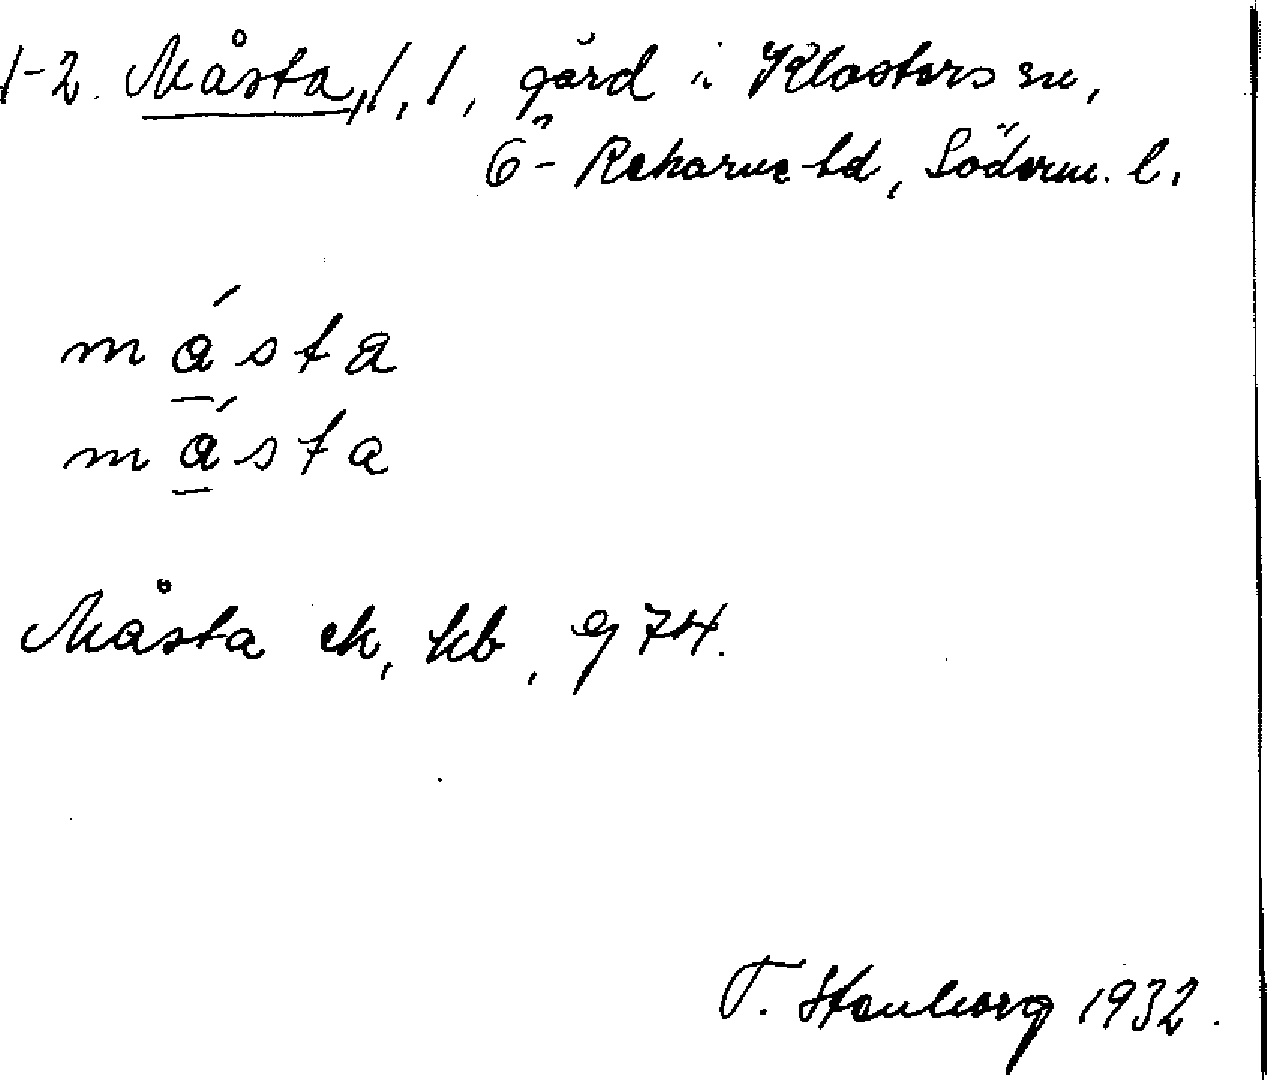 1-2. Måsta, 1, 1, gård i Klosters sn,
Ö- Rekarne hd, Söderm. l.
måsta
måsta
Måsta ek, kb, gj 74.
T. Stenborg 1932.